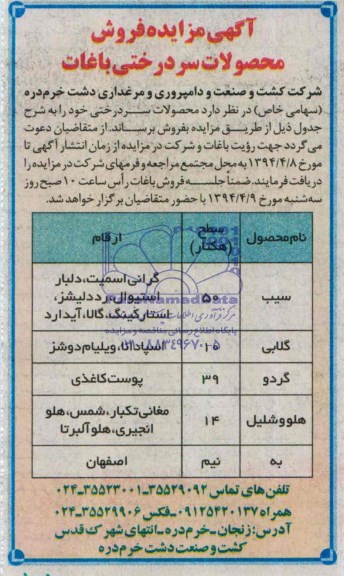 آگهی مزایده فروش
محصولات سر درختی باغات
شرکت کشت و صنعت و دامپروری و مرغداری دشت خرم‌دره
(سهامی خاص) در نظر دارد محصولات سر درختی خود را به شرح
جدول ذیل از طریق مزایده بفروش برساند. از متقاضیان دعوت
می گردد جهت رؤیت باغات و شرکت در مزایده از زمان انتشار آگهی تا
مورخ ۱۳۹۴/۴/۸ به محل مجتمع مراجعه و فرمهای شرکت در مزایده را
دریافت فرمایند. ضمناً جلسه فروش باغات رأس ساعت ۱۰ صبح روز
سه‌شنبه مورخ ۱۳۹۴/۴/۹ با حضور متقاضیان برگزار خواهد شد.
نام محصول سطح (هکتار) ارقام
سیب ۵۰ گرانی اسمیت، دلبار
استیوال، رد دلیشز،
استارکینگ، گالا، آیدارد
گلابی ۱۰ اسپادانا، ویلیام دوشز
گردو ۳۹ پوست کاغذی
هلو و شلیل ۱۴ مغانی تکبار، شمس، هلو
انجیری، هلو آلبرتا
به نیم اصفهان
تلفن های تماس ۳۵۵۲۹۰۹۲-۳۵۵۲۳۰۰۱-۰۲۴
همراه ۰۹۱۲۵۴۲۰۱۳۷-فکس ۳۵۵۲۹۹۰۶-۰۲۴
آدرس: زنجان-خرم‌دره-انتهای شهرک قدس
کشت و صنعت دشت خرم‌دره